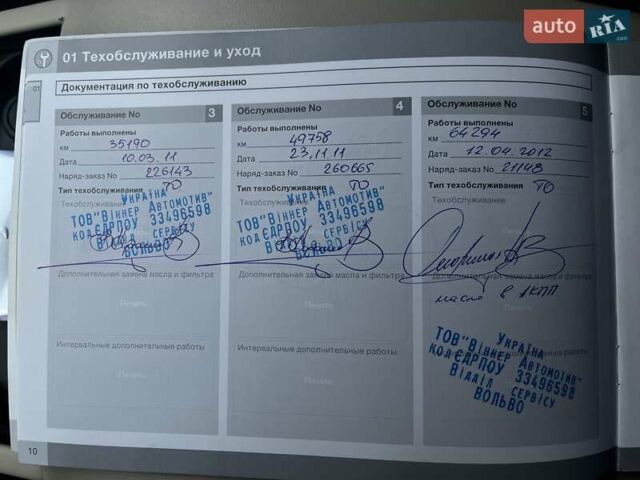 auto RIA.com
01 Техобслуживание и уход
01
Документация по техобслуживанию
Обслуживание No 3
Работы выполнены
км 35190
Дата 10.03.11
Наряд-заказ No 226143
Тип техобслуживания ТО
Техобслуживание
Україна
ТОВ "Віннер Автомотив"
код ЄДРПОУ 33496598
Відділ сервісу
ВОЛЬВО
Дополнительная замена масла и фильтра
Печать
Интервальные дополнительные работы
Печать
Обслуживание No 4
Работы выполнены
км 49758
Дата 23.11.11
Наряд-заказ No 260665
Тип техобслуживания ТО
Техобслуживание
Україна
ТОВ "Віннер Автомотив"
код ЄДРПОУ 33496598
Відділ сервісу
Дополнительная замена масла и фильтра
Печать
Интервальные дополнительные работы
Печать
Обслуживание No 5
Работы выполнены
км 64294
Дата 12.04.2012
Наряд-заказ No 21148
Тип техобслуживания ТО
Техобслуживание
Дополнительная замена масла и фильтра
масло в АКПП.
Україна
ТОВ "Віннер Автомотив"
код ЄДРПОУ 33496598
Відділ сервісу
ВОЛЬВО
10